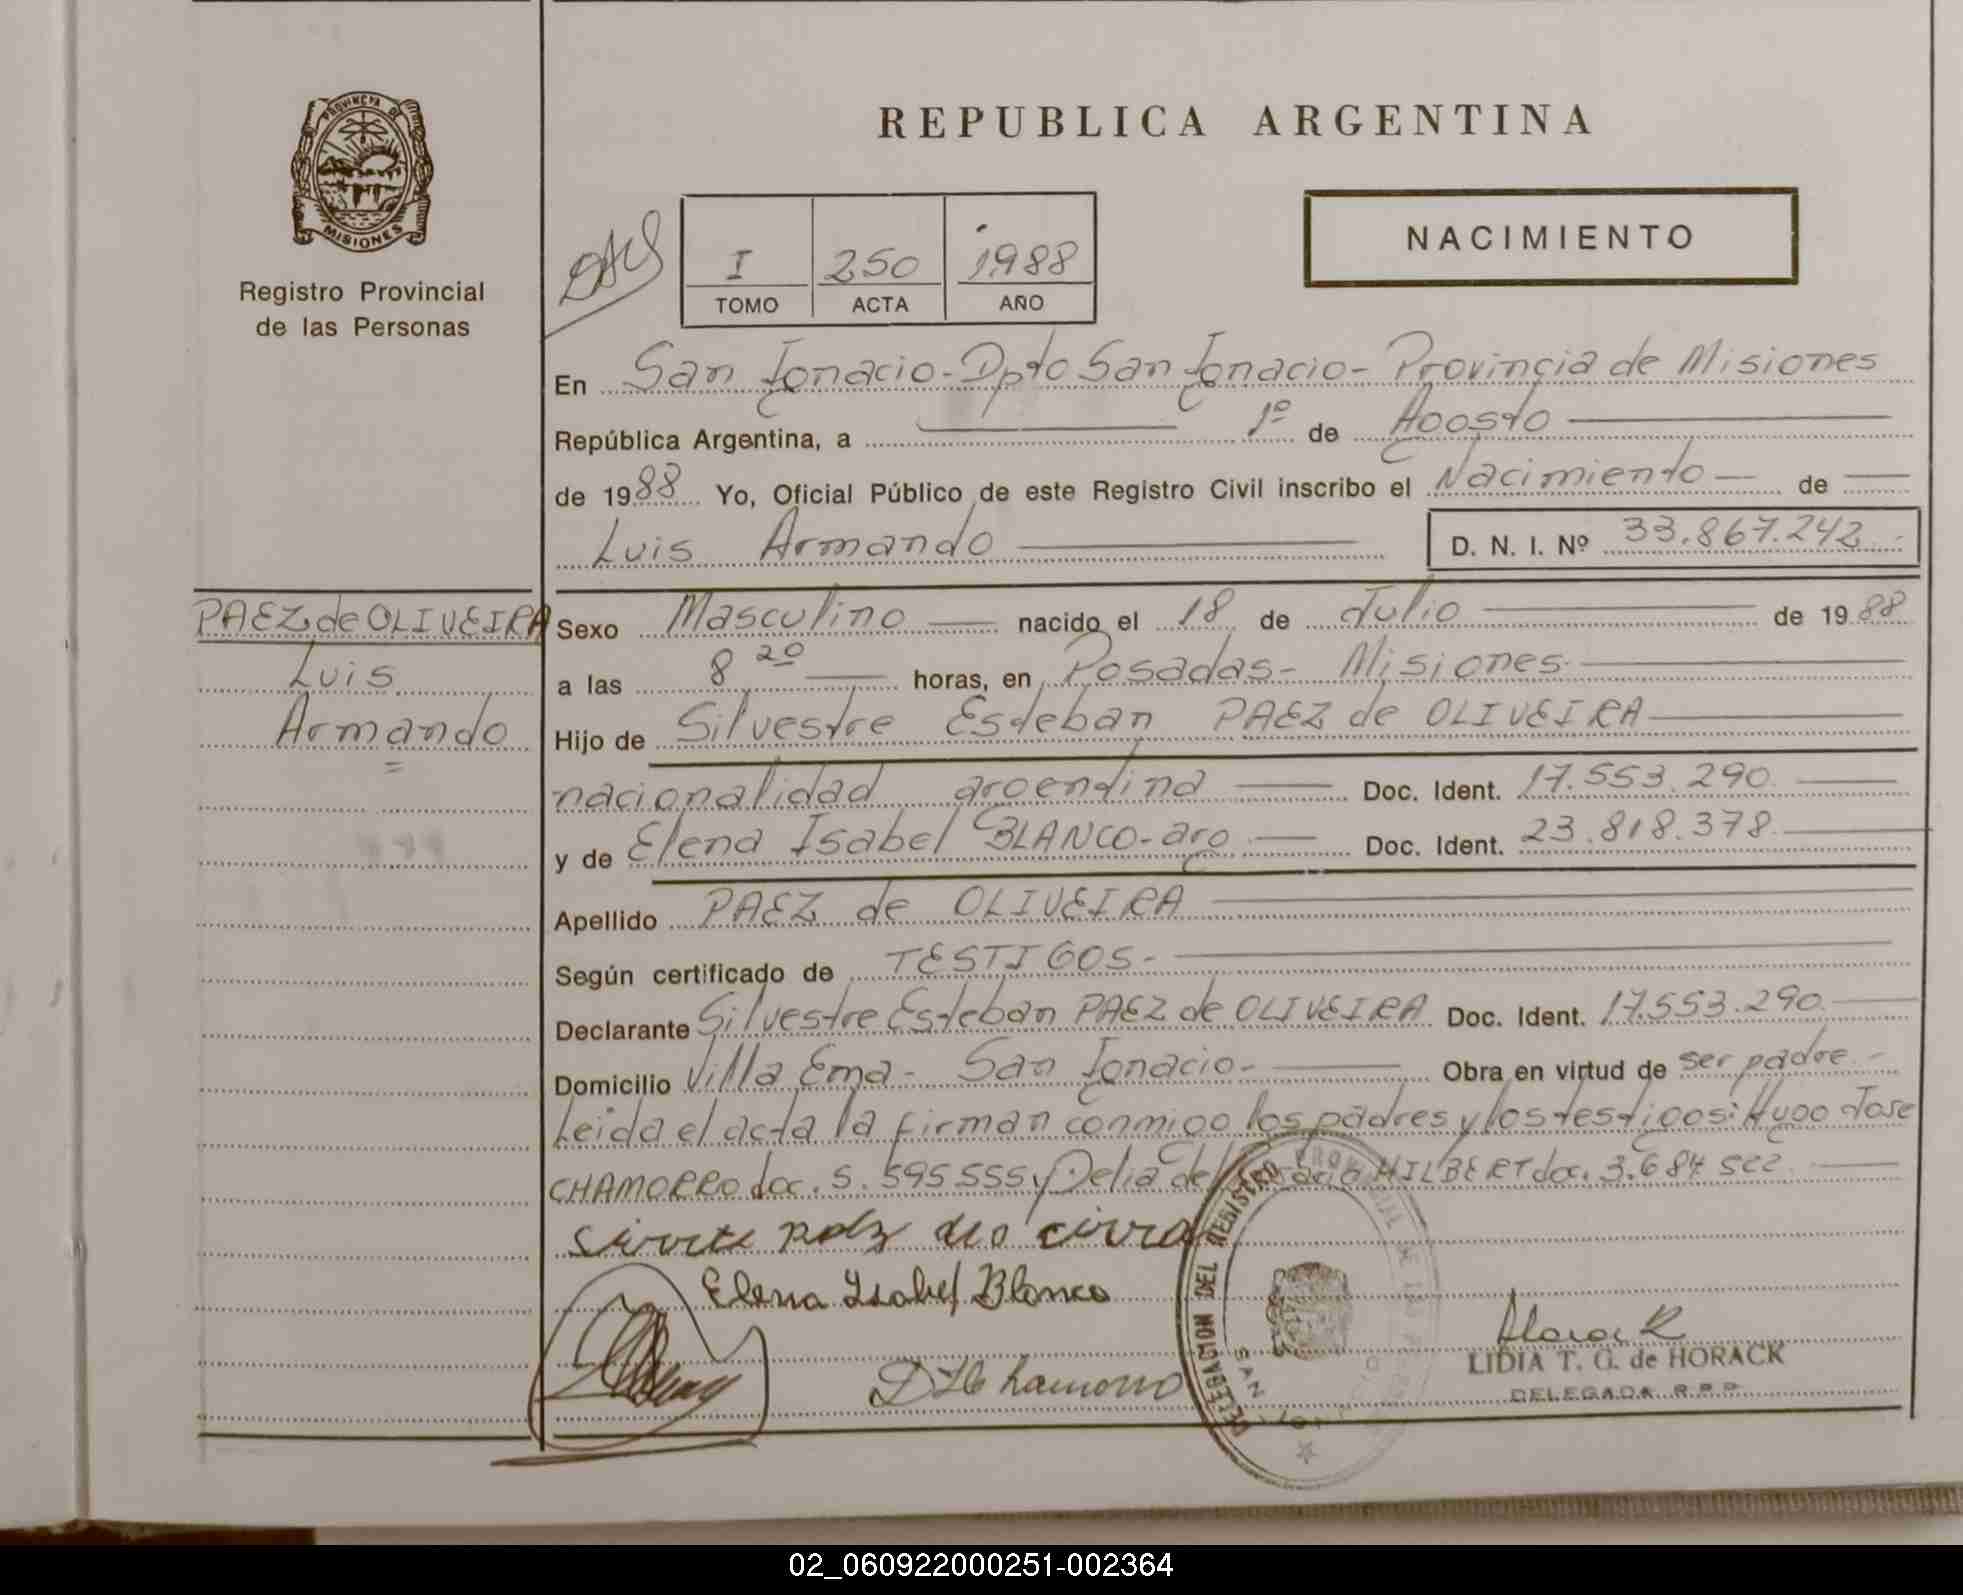 PROVINCIA DE
MISIONES
Registro Provincial
de las Personas
REPUBLICA ARGENTINA
I 250 1988
TOMO ACTA AÑO
NACIMIENTO
En San Ignacio - Dpto San Ignacio - Provincia de Misiones
República Argentina, a 1º de Agosto
de 1988 Yo, Oficial Público de este Registro Civil inscribo el Nacimiento de
Luis Armando
D. N. I. Nº 33.867.242
PAEZ de OLIVEIRA
Luis
Armando
Sexo Masculino nacido el 18 de Julio de 1988
a las 8 20 horas, en Posadas - Misiones
Hijo de Silvestre Esteban PAEZ de OLIVEIRA
nacionalidad argentina Doc. Ident. 17.553.290
y de Elena Isabel BLANCO - arg Doc. Ident. 23.818.378
Apellido PAEZ de OLIVEIRA
Según certificado de TESTIGOS.-
Declarante Silvestre Esteban PAEZ de OLIVEIRA Doc. Ident. 17.553.290
Domicilio Villa Ema - San Ignacio - Obra en virtud de ser padre.-
Leida el acta la firman conmigo los padres y los testigos: Hugo Jose
CHAMORRO doc. 5.595.555 y Delia del HILBERT doc. 3.684.522
Elena Isabel Blanco
D H Chamorro
DELEGACION DEL REGISTRO PROVINCIAL DE LAS
SAN
LIDIA T. G. de HORACK
DELEGADA R.P.P.
02_060922000251-002364